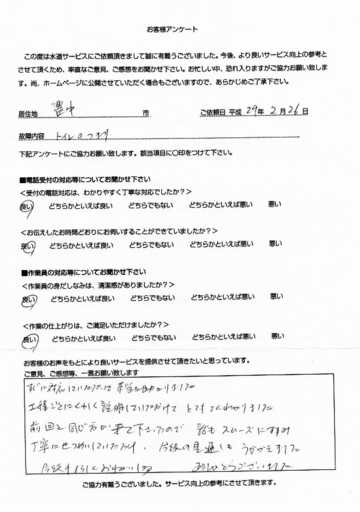 お客様アンケート
この度は水道サービスにご依頼頂きまして誠に有難うございました。今後、より良いサービス向上の参考と
させて頂くため、率直なご意見、ご感想をお聞かせ下さい。お忙しい中、恐れ入りますがご協力お願い致しま
す。尚、ホームページに公開させていただく場合もございますので、あらかじめご了承下さい。
居住地 豊中 市 ご依頼日 平成 29年 2月 26日
故障内容 トイレのつまり
下記アンケートにご協力お願い致します。該当項目に〇印をつけて下さい。
■電話受付の対応等についてお聞かせ下さい
<受付の電話対応は、わかりやすく丁寧な対応でしたか？>
良い どちらかといえば良い どちらでもない どちらかといえば悪い 悪い
<お伝えしたお時間どおりにお伺いすることができていましたか？>
良い どちらかといえば良い どちらでもない どちらかといえば悪い 悪い
■作業員の対応等についてお聞かせ下さい
<作業員の身だしなみは、清潔感がありましたか？>
良い どちらかといえば良い どちらでもない どちらかといえば悪い 悪い
<作業の仕上がりは、ご満足いただけましたか？>
良い どちらかといえば良い どちらでもない どちらかといえば悪い 悪い
お客様のお声をもとにより良いサービスを提供させて頂きたいと思っています。
ご意見、ご感想等、一言お願い致します
すぐに対応していただいて
工程ごとにくわしく説明していただけて とてもわかりました
前回と同じ方が来て下さったので 話もスムーズにすみ
丁寧にせつめいしていただけ、今後の見通しも うかがえました
ありがとうございました
ご協力有難うございました。サービス向上の参考にさせて頂きます。